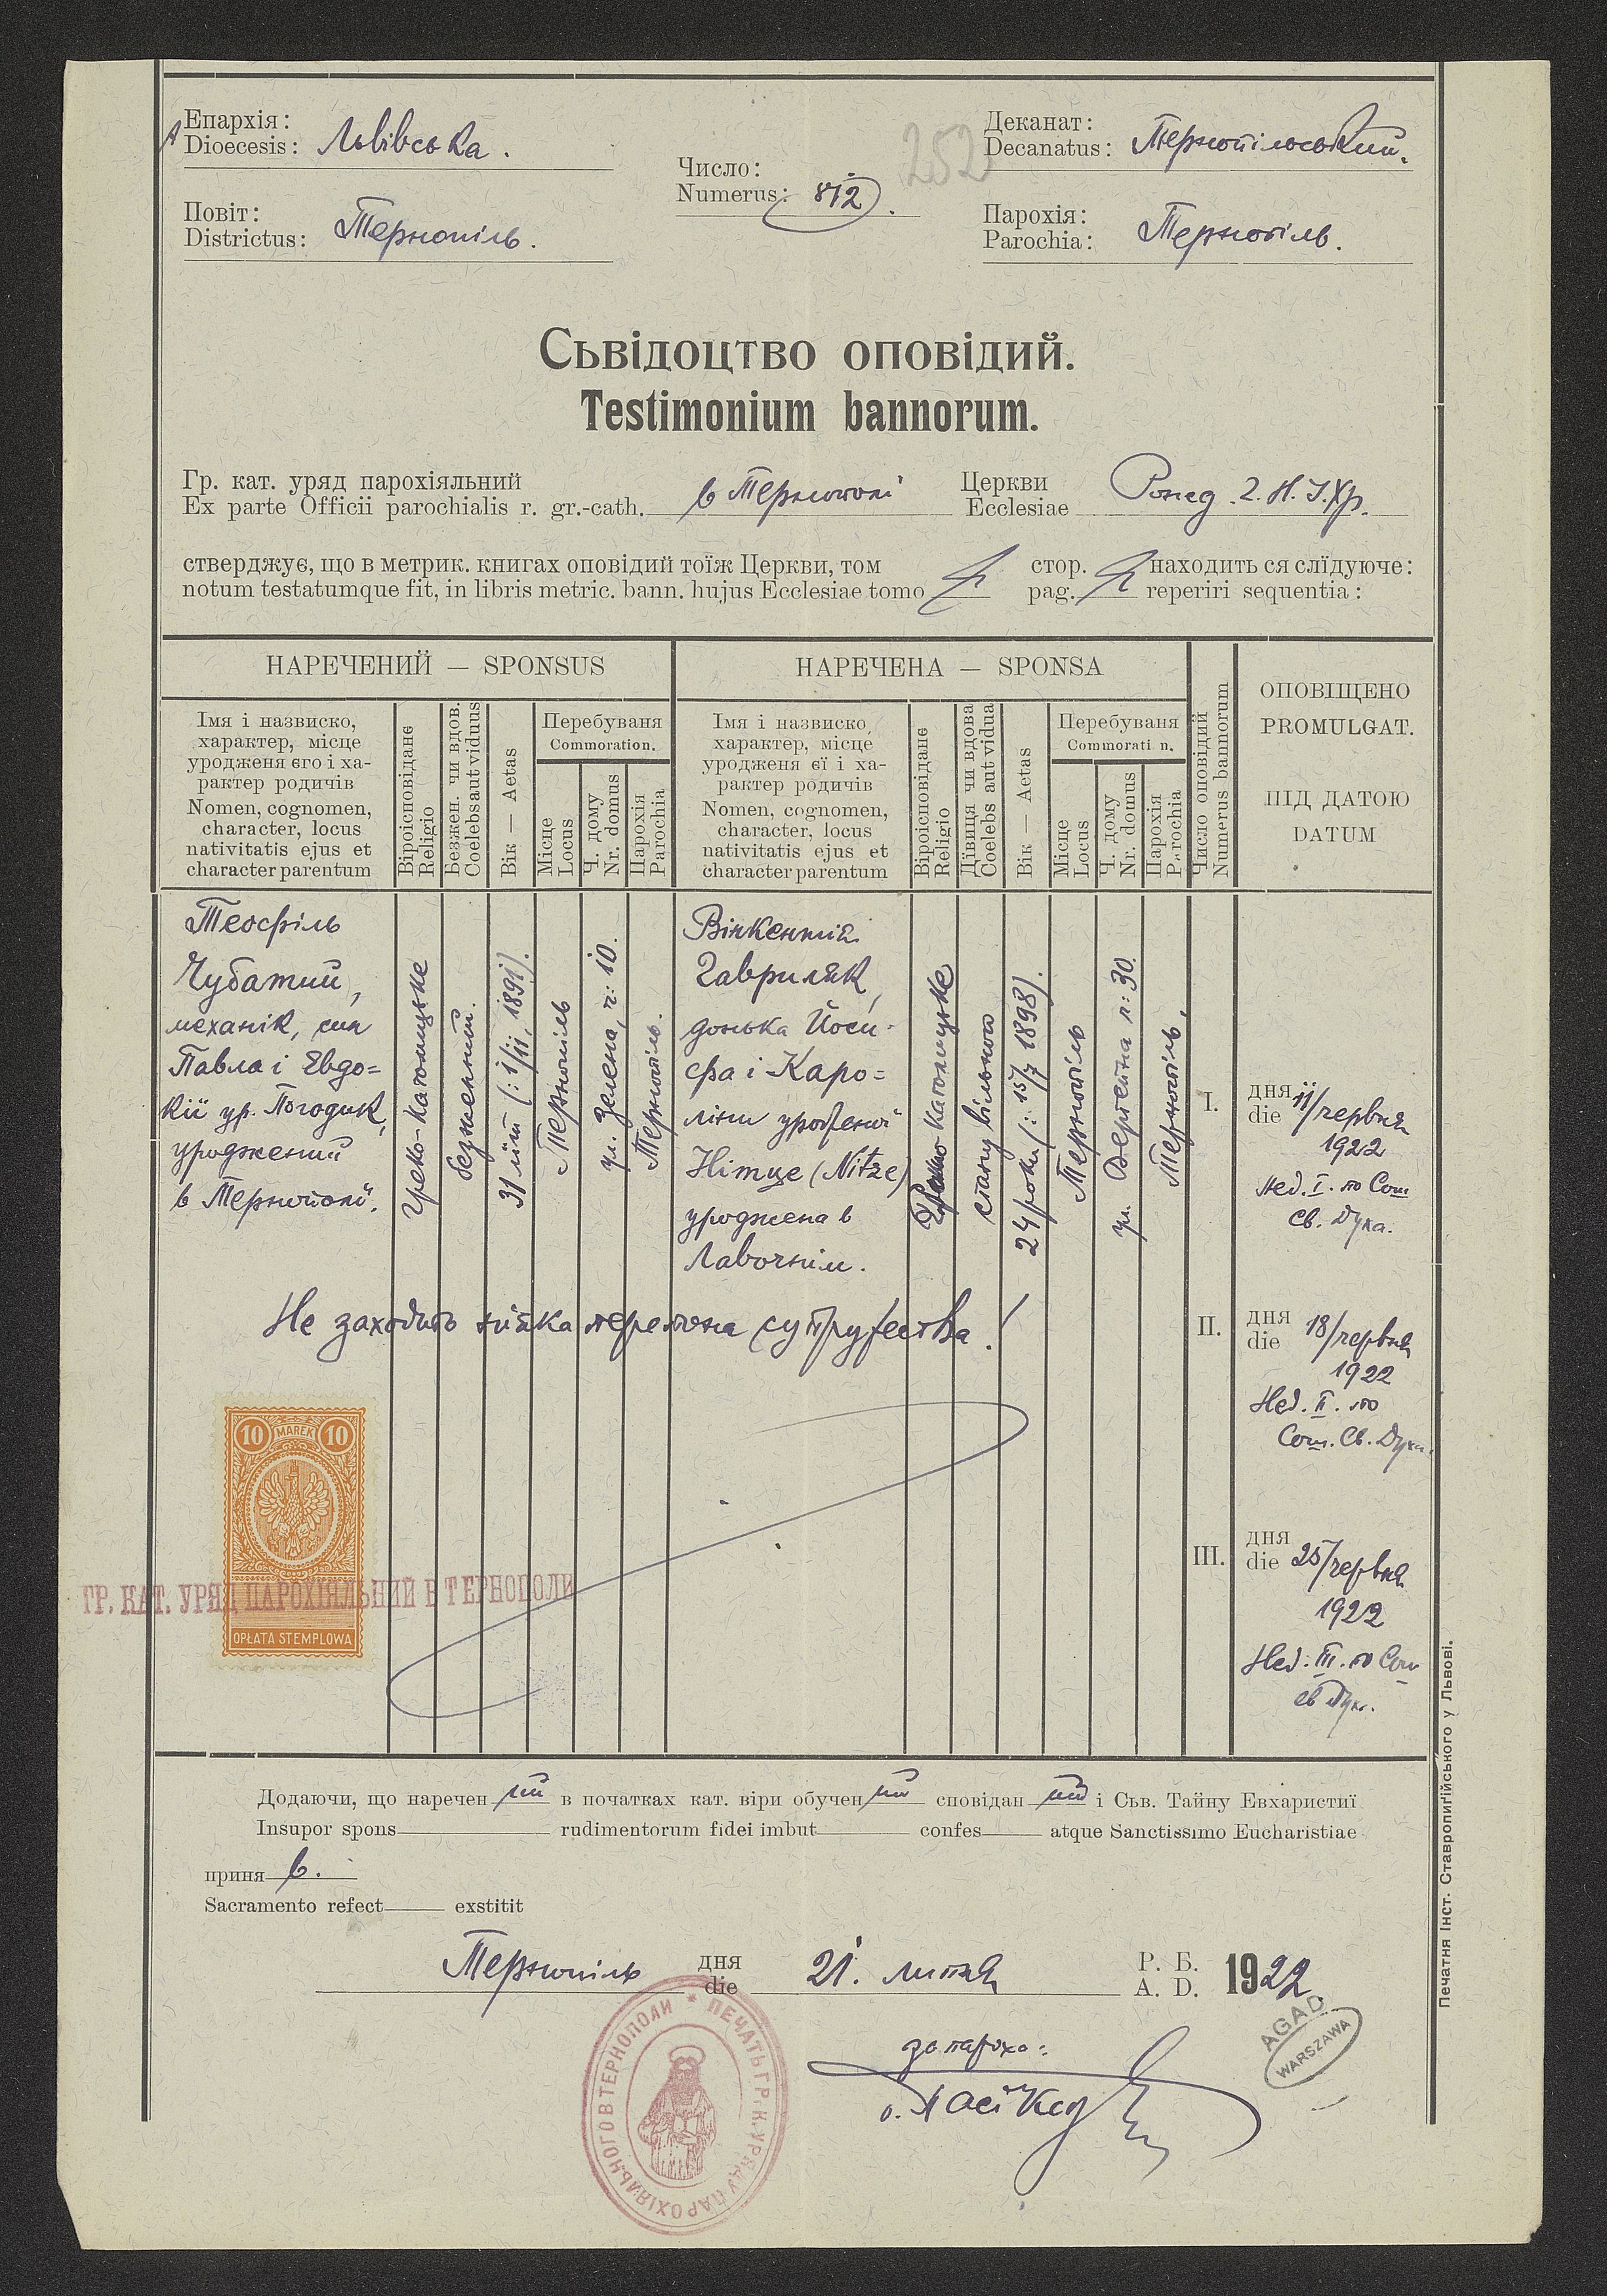 Епархія:
Dioecesis: Львівська.
Число:
Numerus: 812.
252
Деканат:
Decanatus: Тернопільський.
Повіт:
Districtus: Тернопіль.
Парохія:
Parochia: Тернопіль.
Сьвідоцтво оповідий.
Testimonium bannorum.
Гр. кат. уряд парохіяльний
Ex parte Officii parochialis r. gr.-cath. в Тернополі
Церкви
Ecclesiae Н. І. Хр.
стверджує, що в метрик. книгах оповідий тоїж Церкви, том стор. находить ся слїдуюче:
notum testatumque fit, in libris metric. bann. hujus Ecclesiae tomo pag. reperiri sequentia:
НАРЕЧЕНИЙ — SPONSUS
НАРЕЧЕНА — SPONSA
Імя і назвиско,
характер, місце
уродженя єго і ха-
рактер родичів
Nomen, cognomen,
character, locus
nativitatis ejus et
character parentum
Віроісповіданє
Religio
Безжен. чи вдов.
Coelebs aut viduus
Вік — Aetas
Перебуваня
Commoration.
Місце
Locus
Ч. дому
Nr. domus
Парохія
Parochia
Імя і назвиско,
характер, місце
уродженя єї і ха-
рактер родичів
Nomen, cognomen,
character, locus
nativitatis ejus et
character parentum
Віроісповіданє
Religio
Дївиця чи вдова
Coelebs aut vidua
Вік — Aetas
Перебуваня
Commorati n.
Місце
Locus
Ч. дому
Nr. domus
Парохія
Parochia
Число оповідий
Numerus bannorum
ОПОВІЩЕНО
PROMULGAT.
ПІД ДАТОЮ
DATUM
Теофіль
Чубатий,
механік, син
Павла і Евдо=
кії ур. Погодик,
уроджений
в Тернополі.
Греко-католицьке
безженний.
31 літ (: 1/11, 1891).
Тернопіль
ул. Зелена, ч: 10.
Тернопіль.
Вінкентія
Гавриляк,
донька Йоси-
фа і Каро=
ліни уродженої
Нітце (Nitze)
уроджена в
Лавочнім.
католицьке
стану вільного
24 роки (: 15/7 1898).
Тернопіль
ул. 30.
Тернопіль.
I. дня
die 11/червня
1922
Нед. I. по Сош
Св. Духа.
II. дня
die 18/червня
1922
Нед. II. по
Сош. Св. Духа.
III. дня
die 25/червня
1922
Нед. III. по Сош
св Дух.
Не заходить ніяка перепона супружества!
10 MAREK 10
OPŁATA STEMPLOWA
ГР. КАТ. УРЯД ПАРОХІЯЛЬНИЙ В ТЕРНОПОЛИ
Додаючи, що наречен ий в початках кат. віри обучен ий сповідан ий і Сьв. Тайну Евхаристиї
Insupor spons rudimentorum fidei imbut confes atque Sanctissimo Eucharistiae
приня в.
Sacramento refect exstitit
Тернопіль дня
die 21. липня Р. Б.
A. D. 1922.
за пароха:
о.
ПЕЧАТЬ ГР. К. УРЯДУ ПАРОХІЯЛЬНОГО В ТЕРНОПОЛИ
AGAD
WARSZAWA
Печатня Інст. Ставропиґійського у Львові.